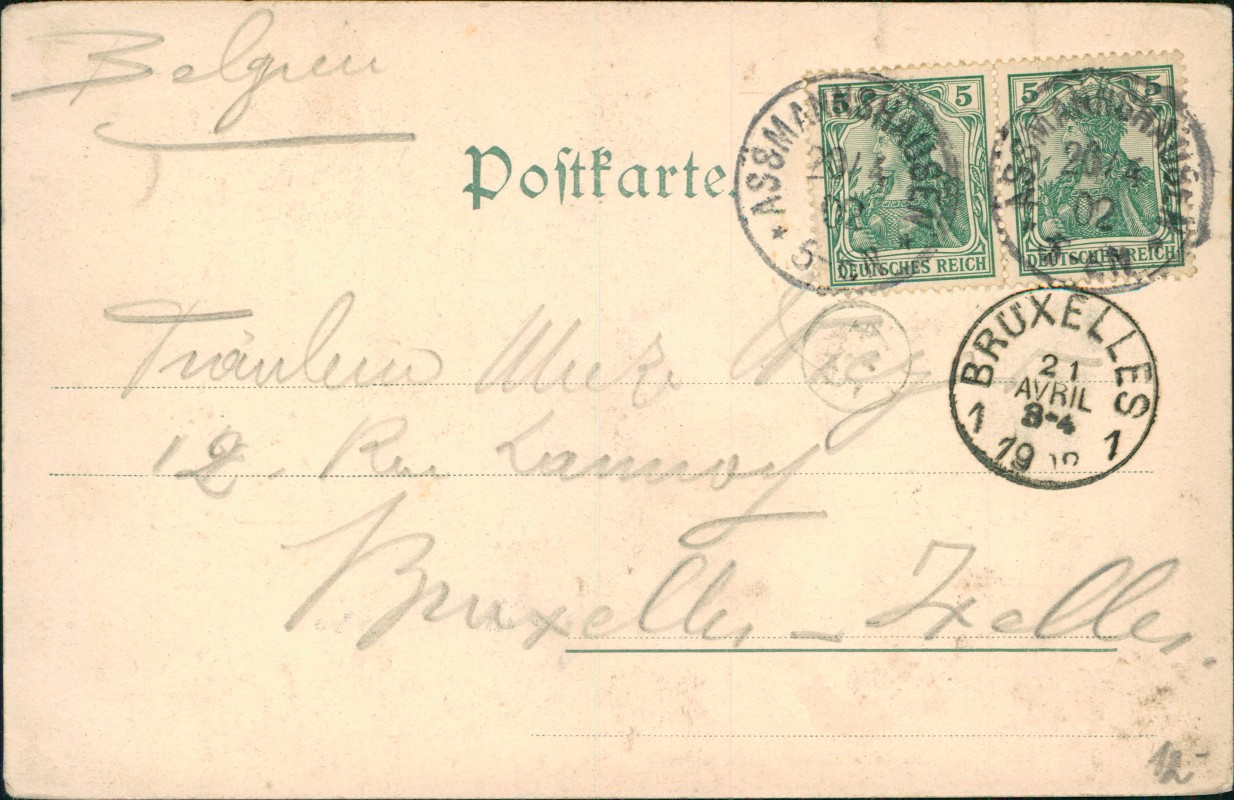 Belgien
Postkarte.
5 5 5 5
DEUTSCHES REICH DEUTSCHES REICH
* ASSMANNSHAUSEN *
20/4
02
5-6N
* ASSMANNSHAUSEN *
20/4
02
BRUXELLES
21
AVRIL
3-4
1 1902 1
Fräulein
12. Rue Lannoy
Bruxelles - Ixelles.
12-